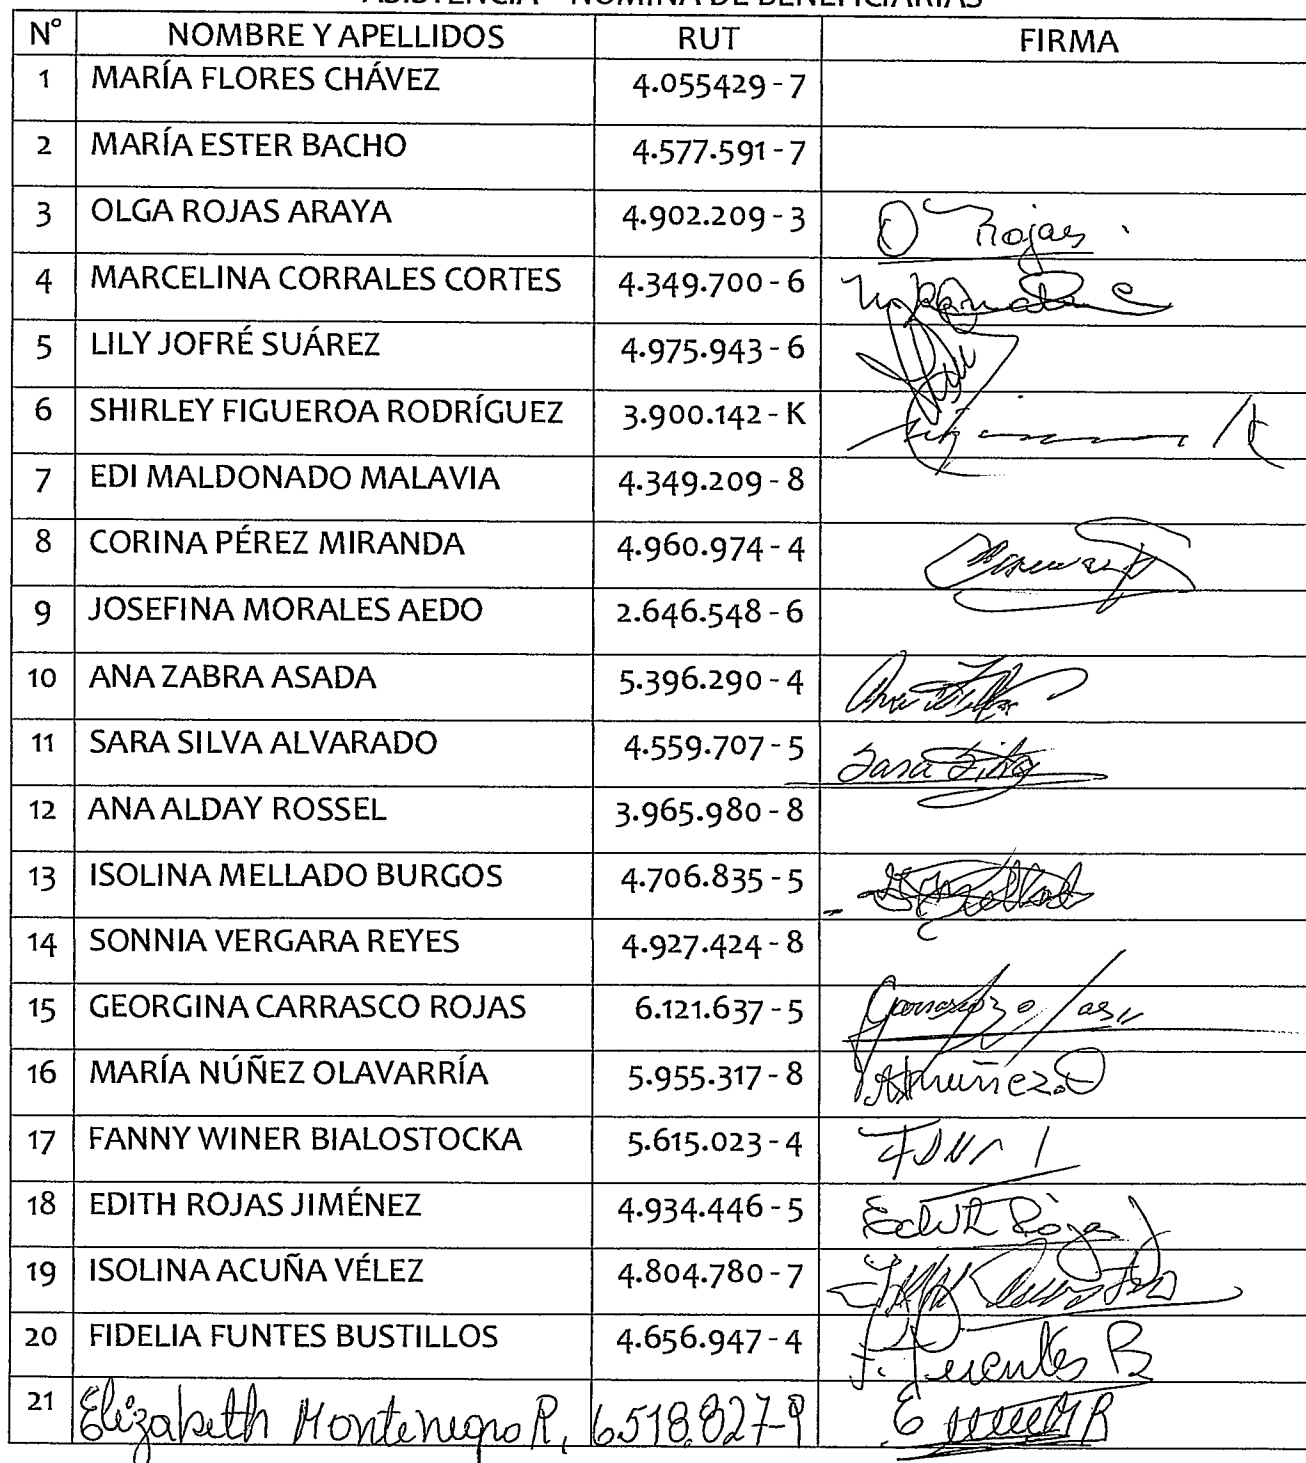 ASISTENCIA - NOMINA DE BENEFICIARIAS
N° NOMBRE Y APELLIDOS RUT FIRMA
1 MARÍA FLORES CHÁVEZ 4.055429 - 7
2 MARÍA ESTER BACHO 4.577.591 - 7
3 OLGA ROJAS ARAYA 4.902.209 - 3 O Rojas
4 MARCELINA CORRALES CORTES 4.349.700 - 6
5 LILY JOFRÉ SUÁREZ 4.975.943 - 6
6 SHIRLEY FIGUEROA RODRÍGUEZ 3.900.142 - K
7 EDI MALDONADO MALAVIA 4.349.209 - 8
8 CORINA PÉREZ MIRANDA 4.960.974 - 4
9 JOSEFINA MORALES AEDO 2.646.548 - 6
10 ANA ZABRA ASADA 5.396.290 - 4
11 SARA SILVA ALVARADO 4.559.707 - 5 Sara Silva
12 ANA ALDAY ROSSEL 3.965.980 - 8
13 ISOLINA MELLADO BURGOS 4.706.835 - 5
14 SONNIA VERGARA REYES 4.927.424 - 8
15 GEORGINA CARRASCO ROJAS 6.121.637 - 5
16 MARÍA NÚÑEZ OLAVARRÍA 5.955.317 - 8
17 FANNY WINER BIALOSTOCKA 5.615.023 - 4
18 EDITH ROJAS JIMÉNEZ 4.934.446 - 5 Edith Rojas J
19 ISOLINA ACUÑA VÉLEZ 4.804.780 - 7
20 FIDELIA FUNTES BUSTILLOS 4.656.947 - 4 F. Fuentes B
21 Elizabeth Montenegro R. 6.518.827-9